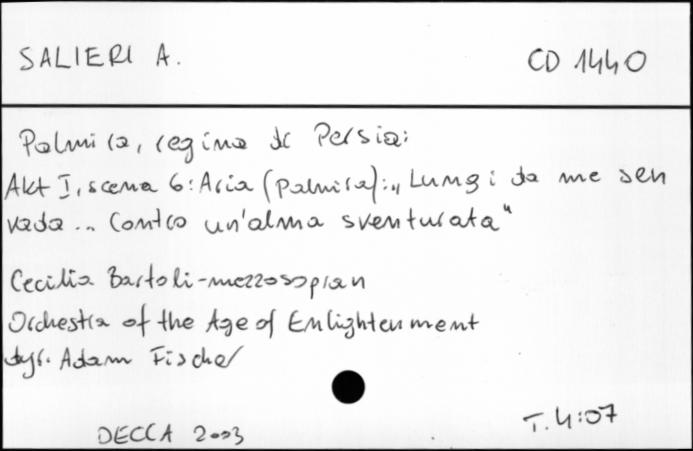 SALIERI A.
CD 1440
Palmira, regina di Persia:
Akt I, scena 6: Aria (Palmira): „Lungi da me sen
vada... Contro un'alma sventurata"
Cecilia Bartoli - mezzosopran
Orchestra of the Age of Enlightenment
dyr. Adam Fischer
DECCA 2003
T. 4:07